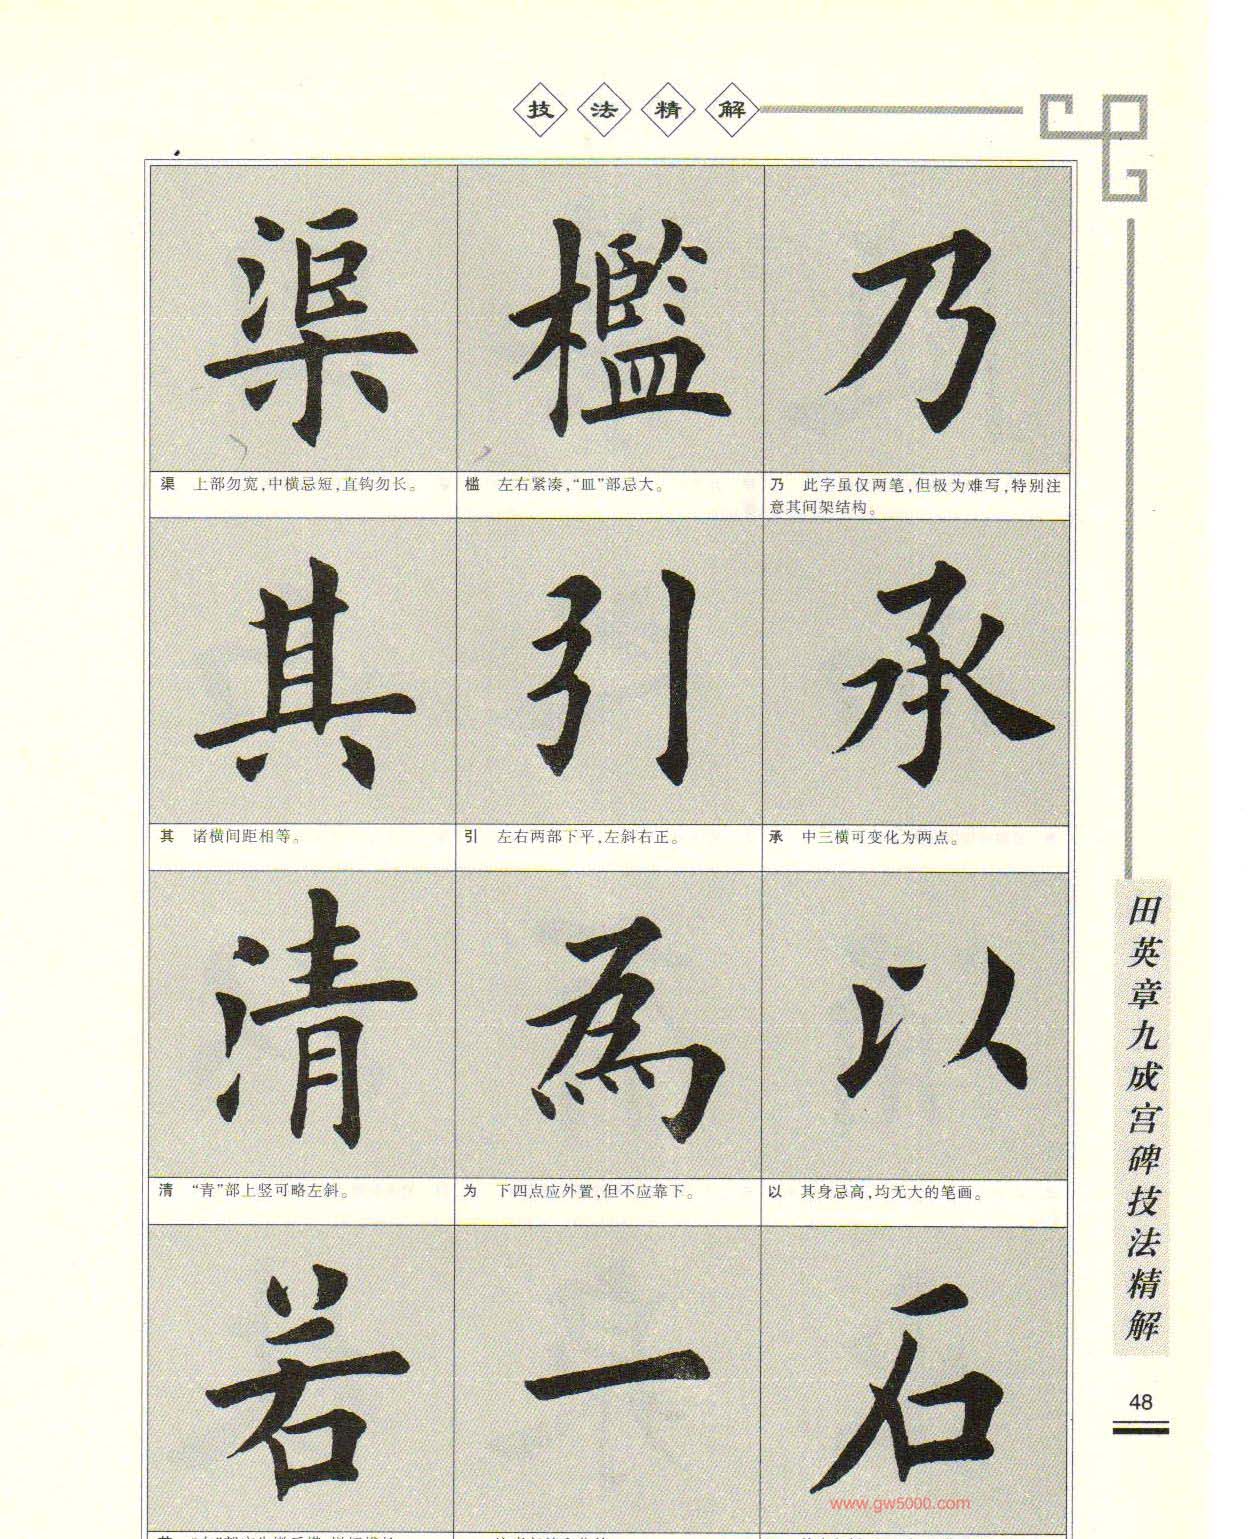 技法精解
渠 檻 乃
渠 上部勿宽,中横忌短,直钩勿长。
槛 左右紧凑,“皿”部忌大。
乃 此字虽仅两笔,但极为难写,特别注
意其间架结构。
其 引 承
其 诸横间距相等。
引 左右两部下平,左斜右正。
承 中三横可变化为两点。
清 為 以
清 “青”部上竖可略左斜。
为 下四点应外置,但不应靠下。
以 其身忌高,均无大的笔画。
若 一 石
田英章九成宫碑技法精解
48
www.gw5000.com